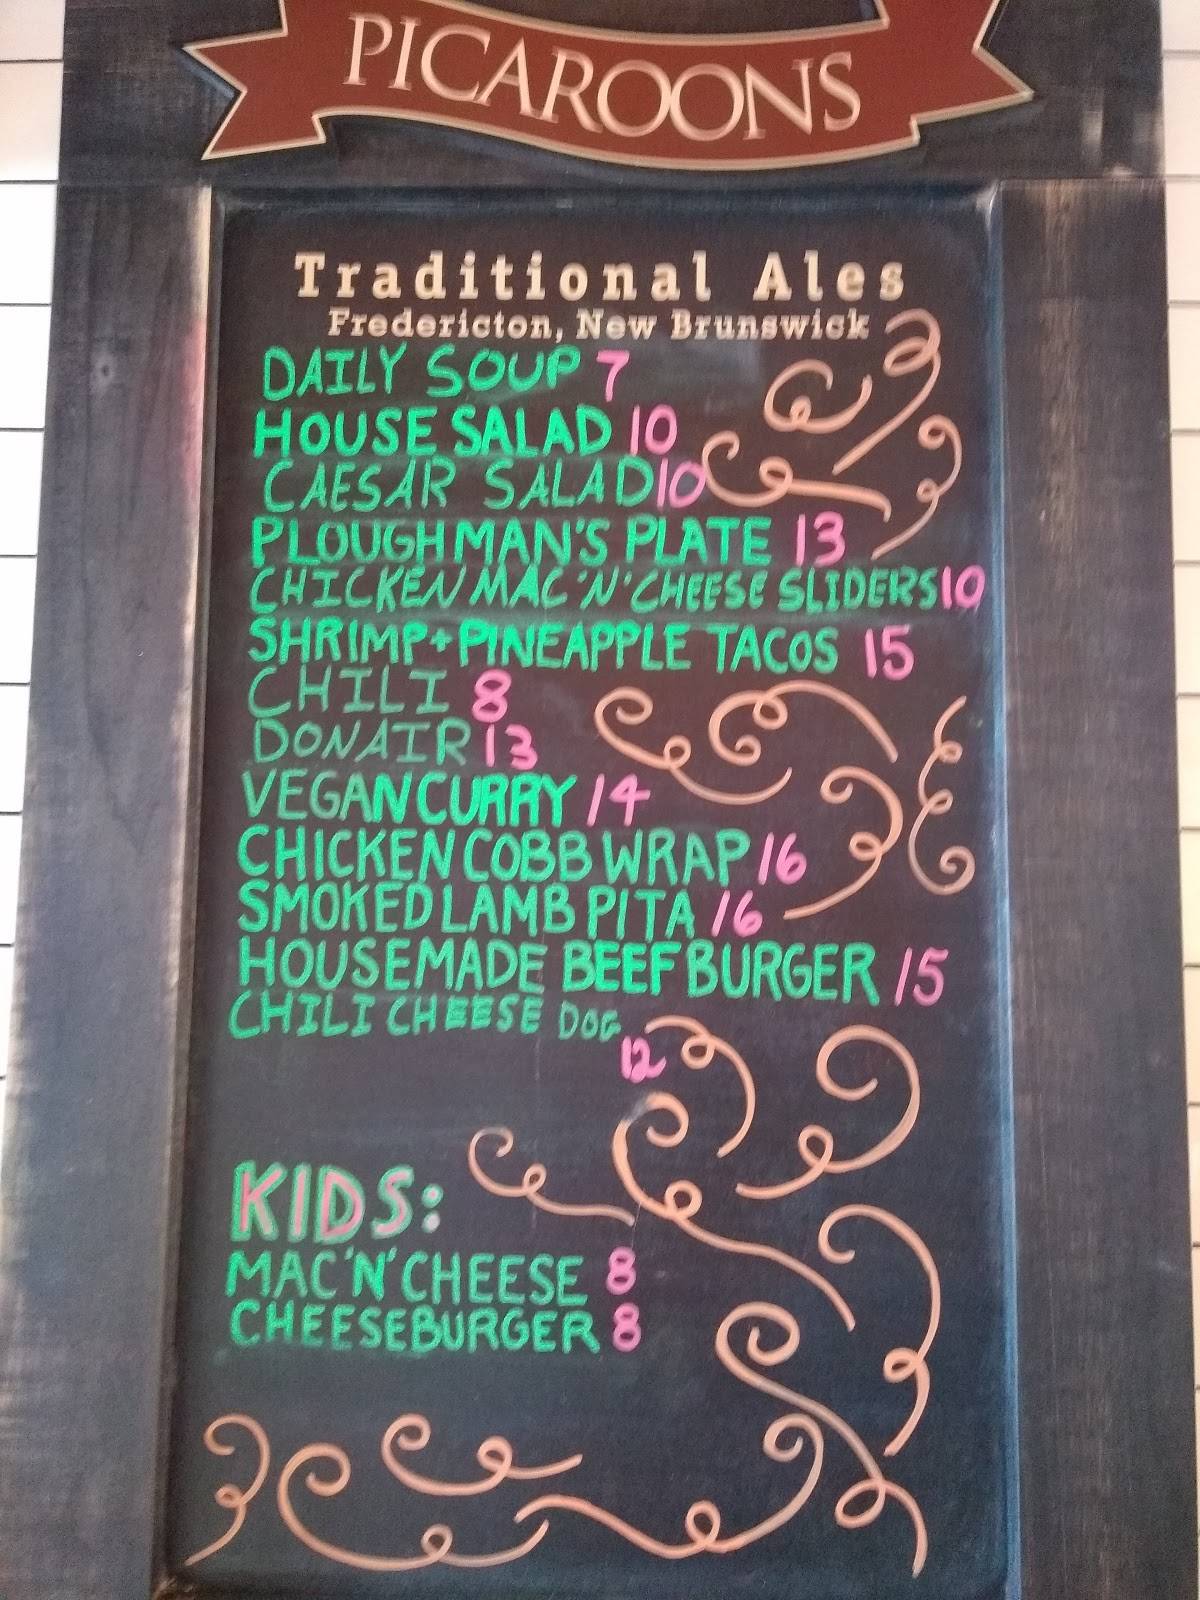 PICAROONS
Traditional Ales
Fredericton, New Brunswick
DAILY SOUP 7
HOUSE SALAD 10
CAESAR SALAD 10
PLOUGHMAN'S PLATE 13
CHICKEN MAC 'N' CHEESE SLIDERS 10
SHRIMP + PINEAPPLE TACOS 15
CHILI 8
DONAIR 13
VEGAN CURRY 14
CHICKEN COBB WRAP 16
SMOKED LAMB PITA 16
HOUSEMADE BEEF BURGER 15
CHILI CHEESE DOG
12
KIDS:
MAC 'N' CHEESE 8
CHEESEBURGER 8